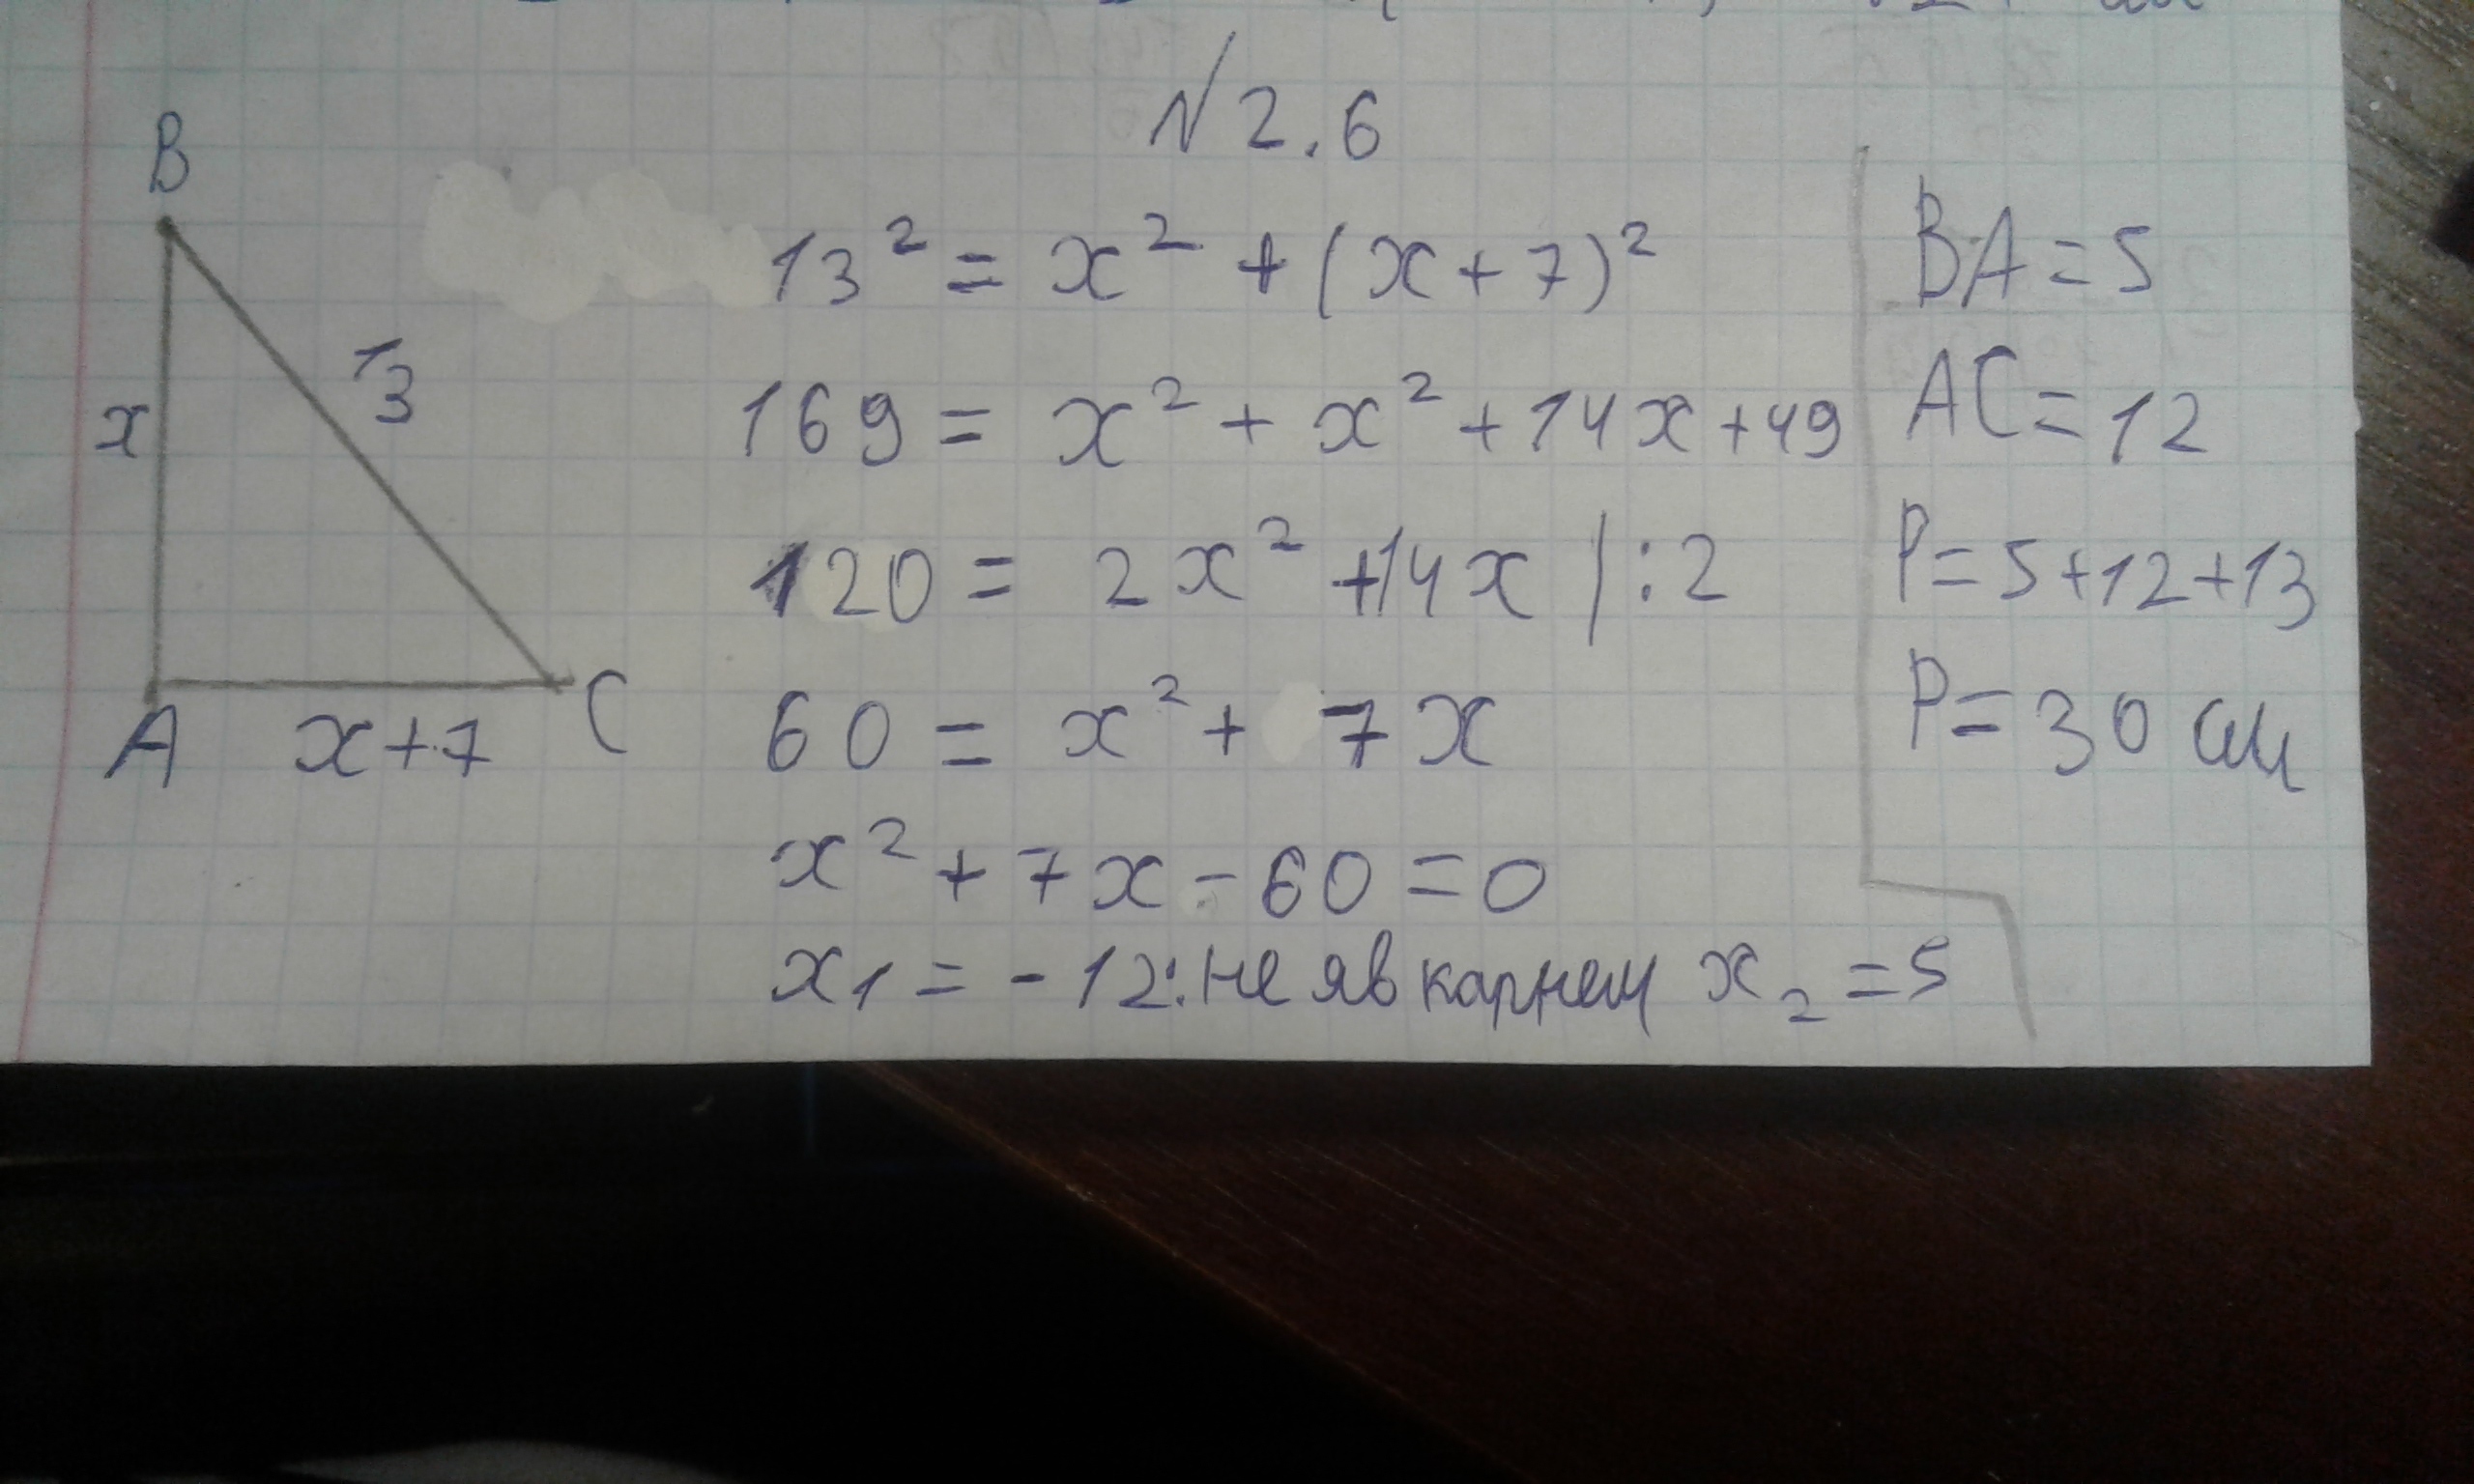 N 2.6
B
x
13
A
x+7
C
13² = x² + (x+7)²
169 = x² + x² + 14x + 49
120 = 2x² + 14x | :2
60 = x² + 7x
x² + 7x - 60 = 0
x₁ = -12: не яв карнем x₂ = 5
BA = 5
AC = 12
P = 5+12+13
P = 30 см